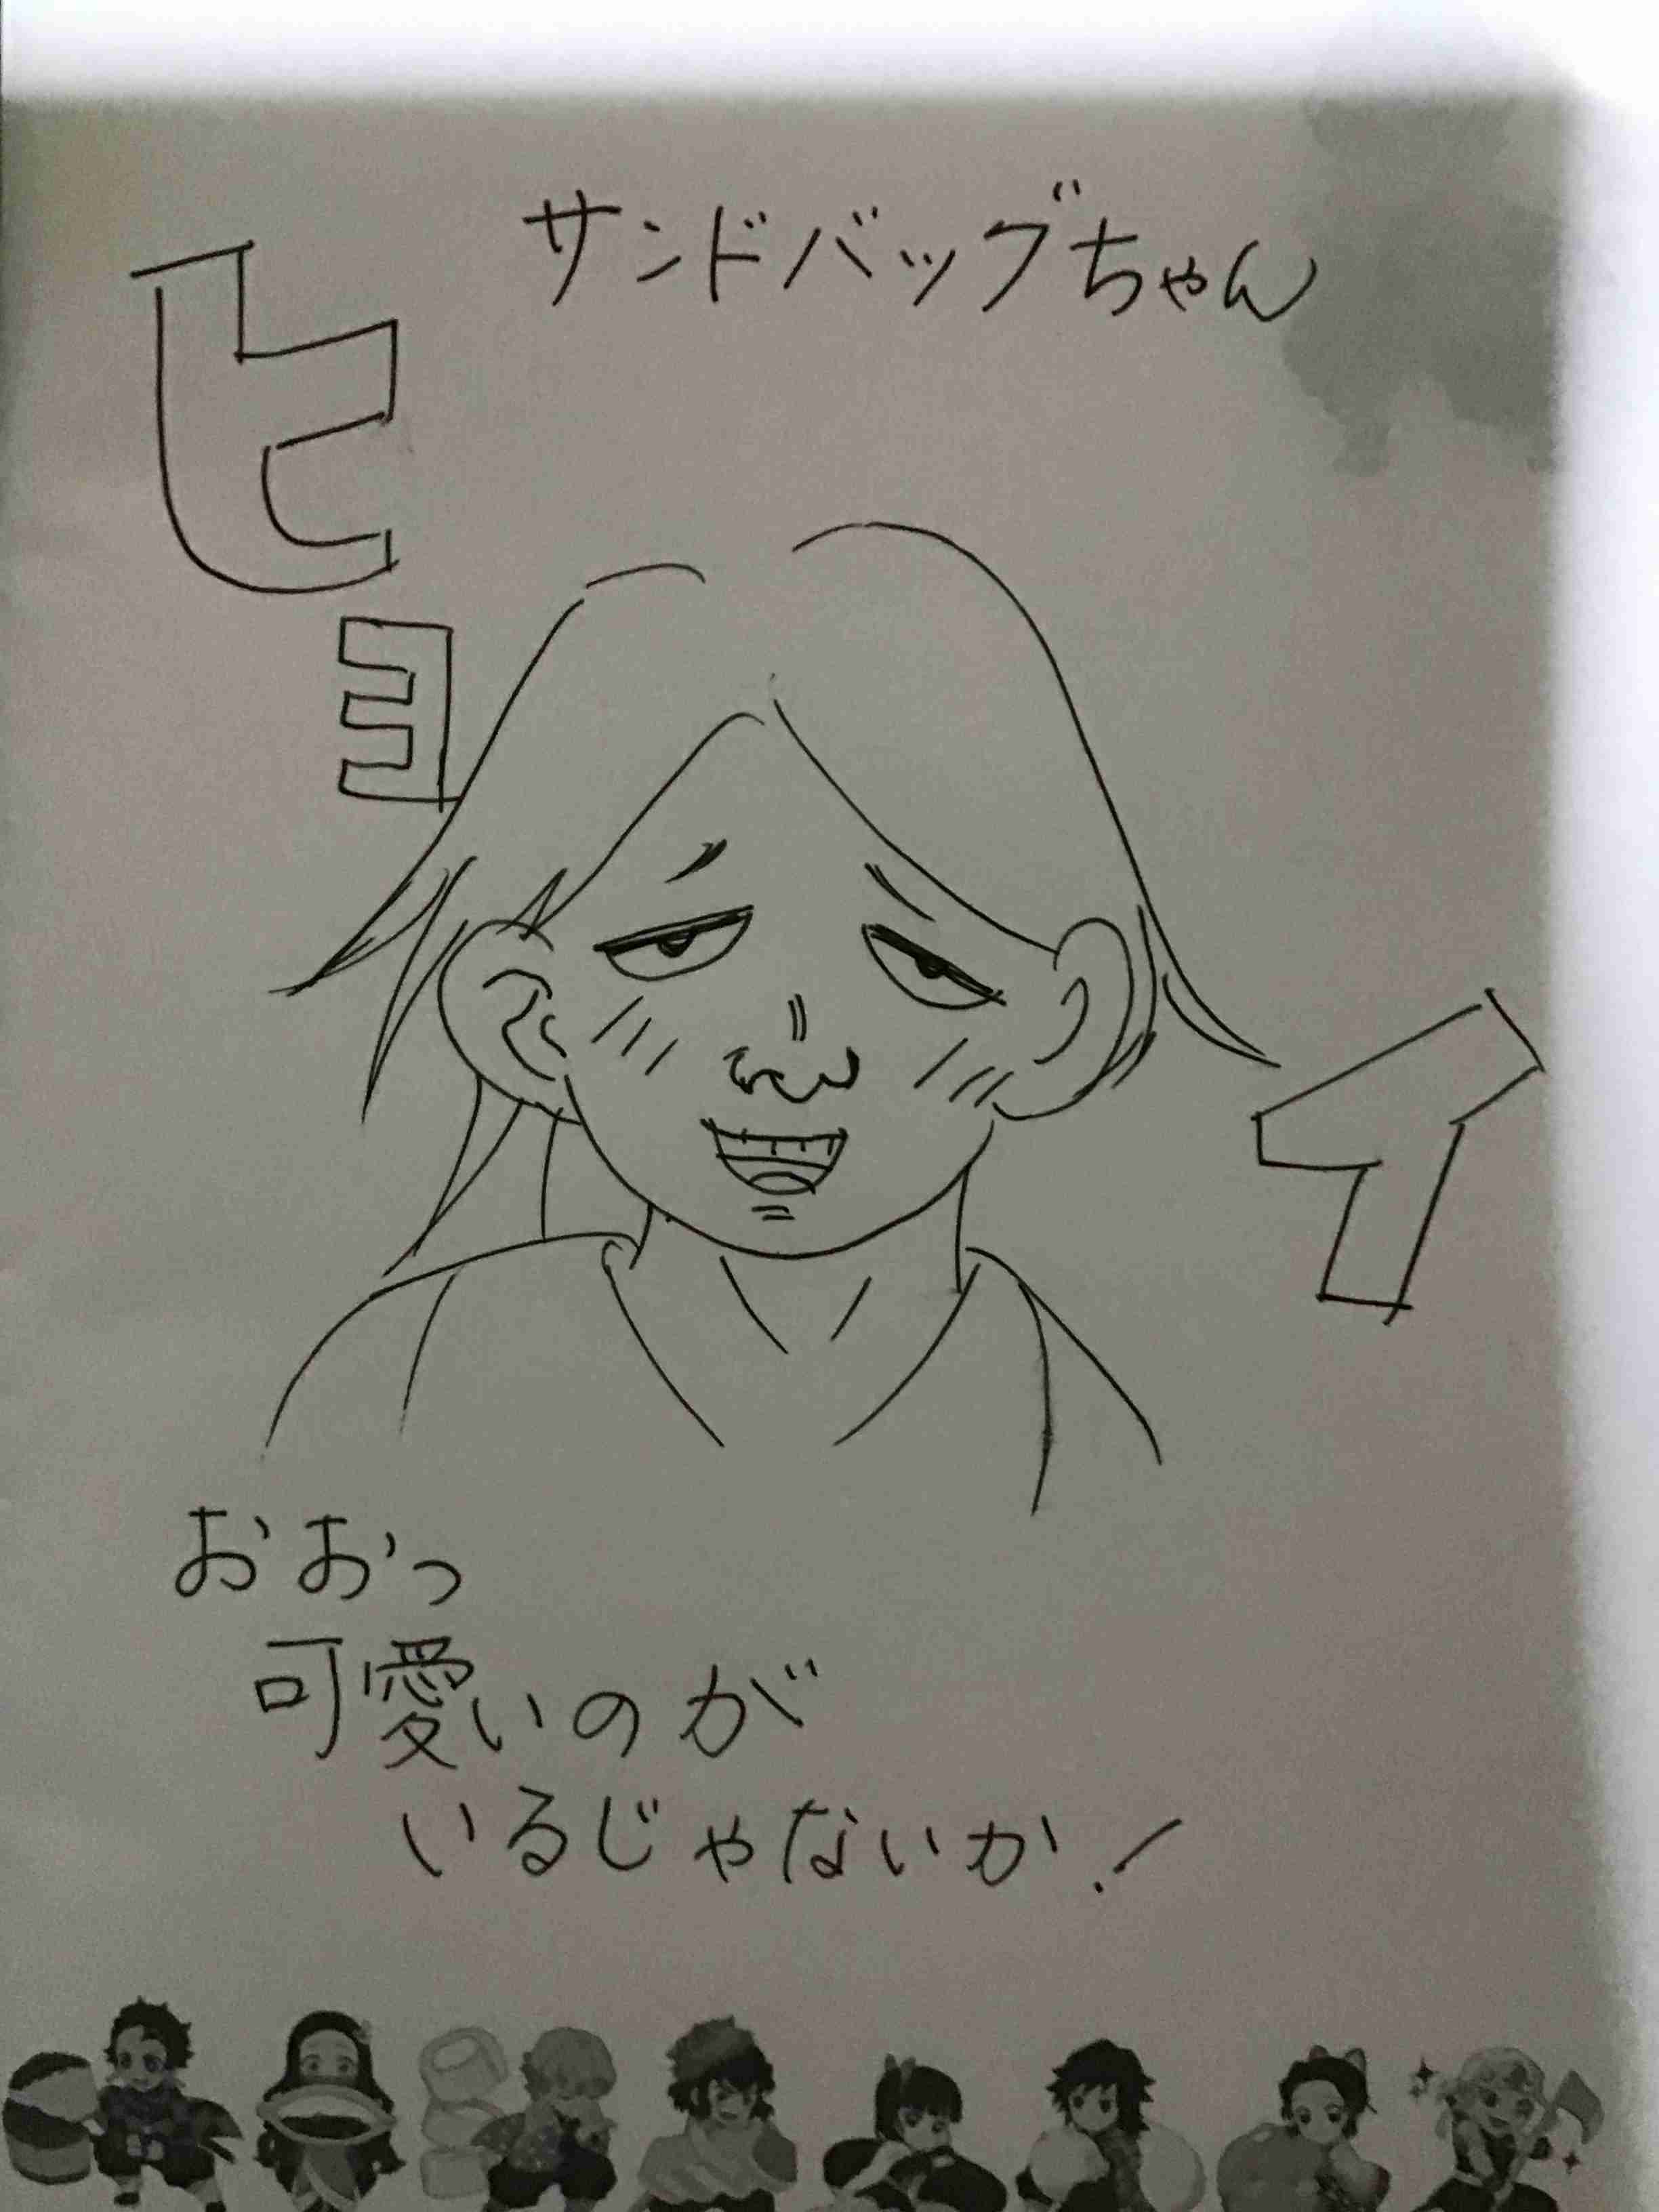 サンドバッグちゃん
ヒョイ
おおっ
可愛いのが
いるじゃないか!